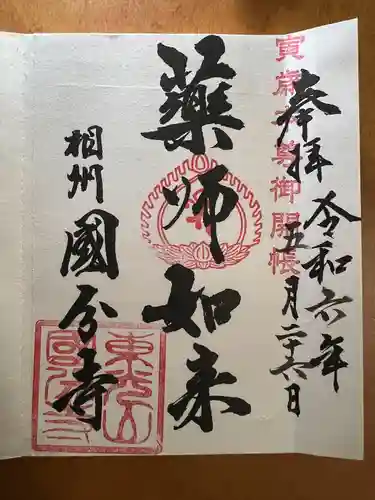 奉拝
令和六年
五月二十六日
寅歳本尊御開帳
藥師如来
相州
國分寺
東光山
國分寺